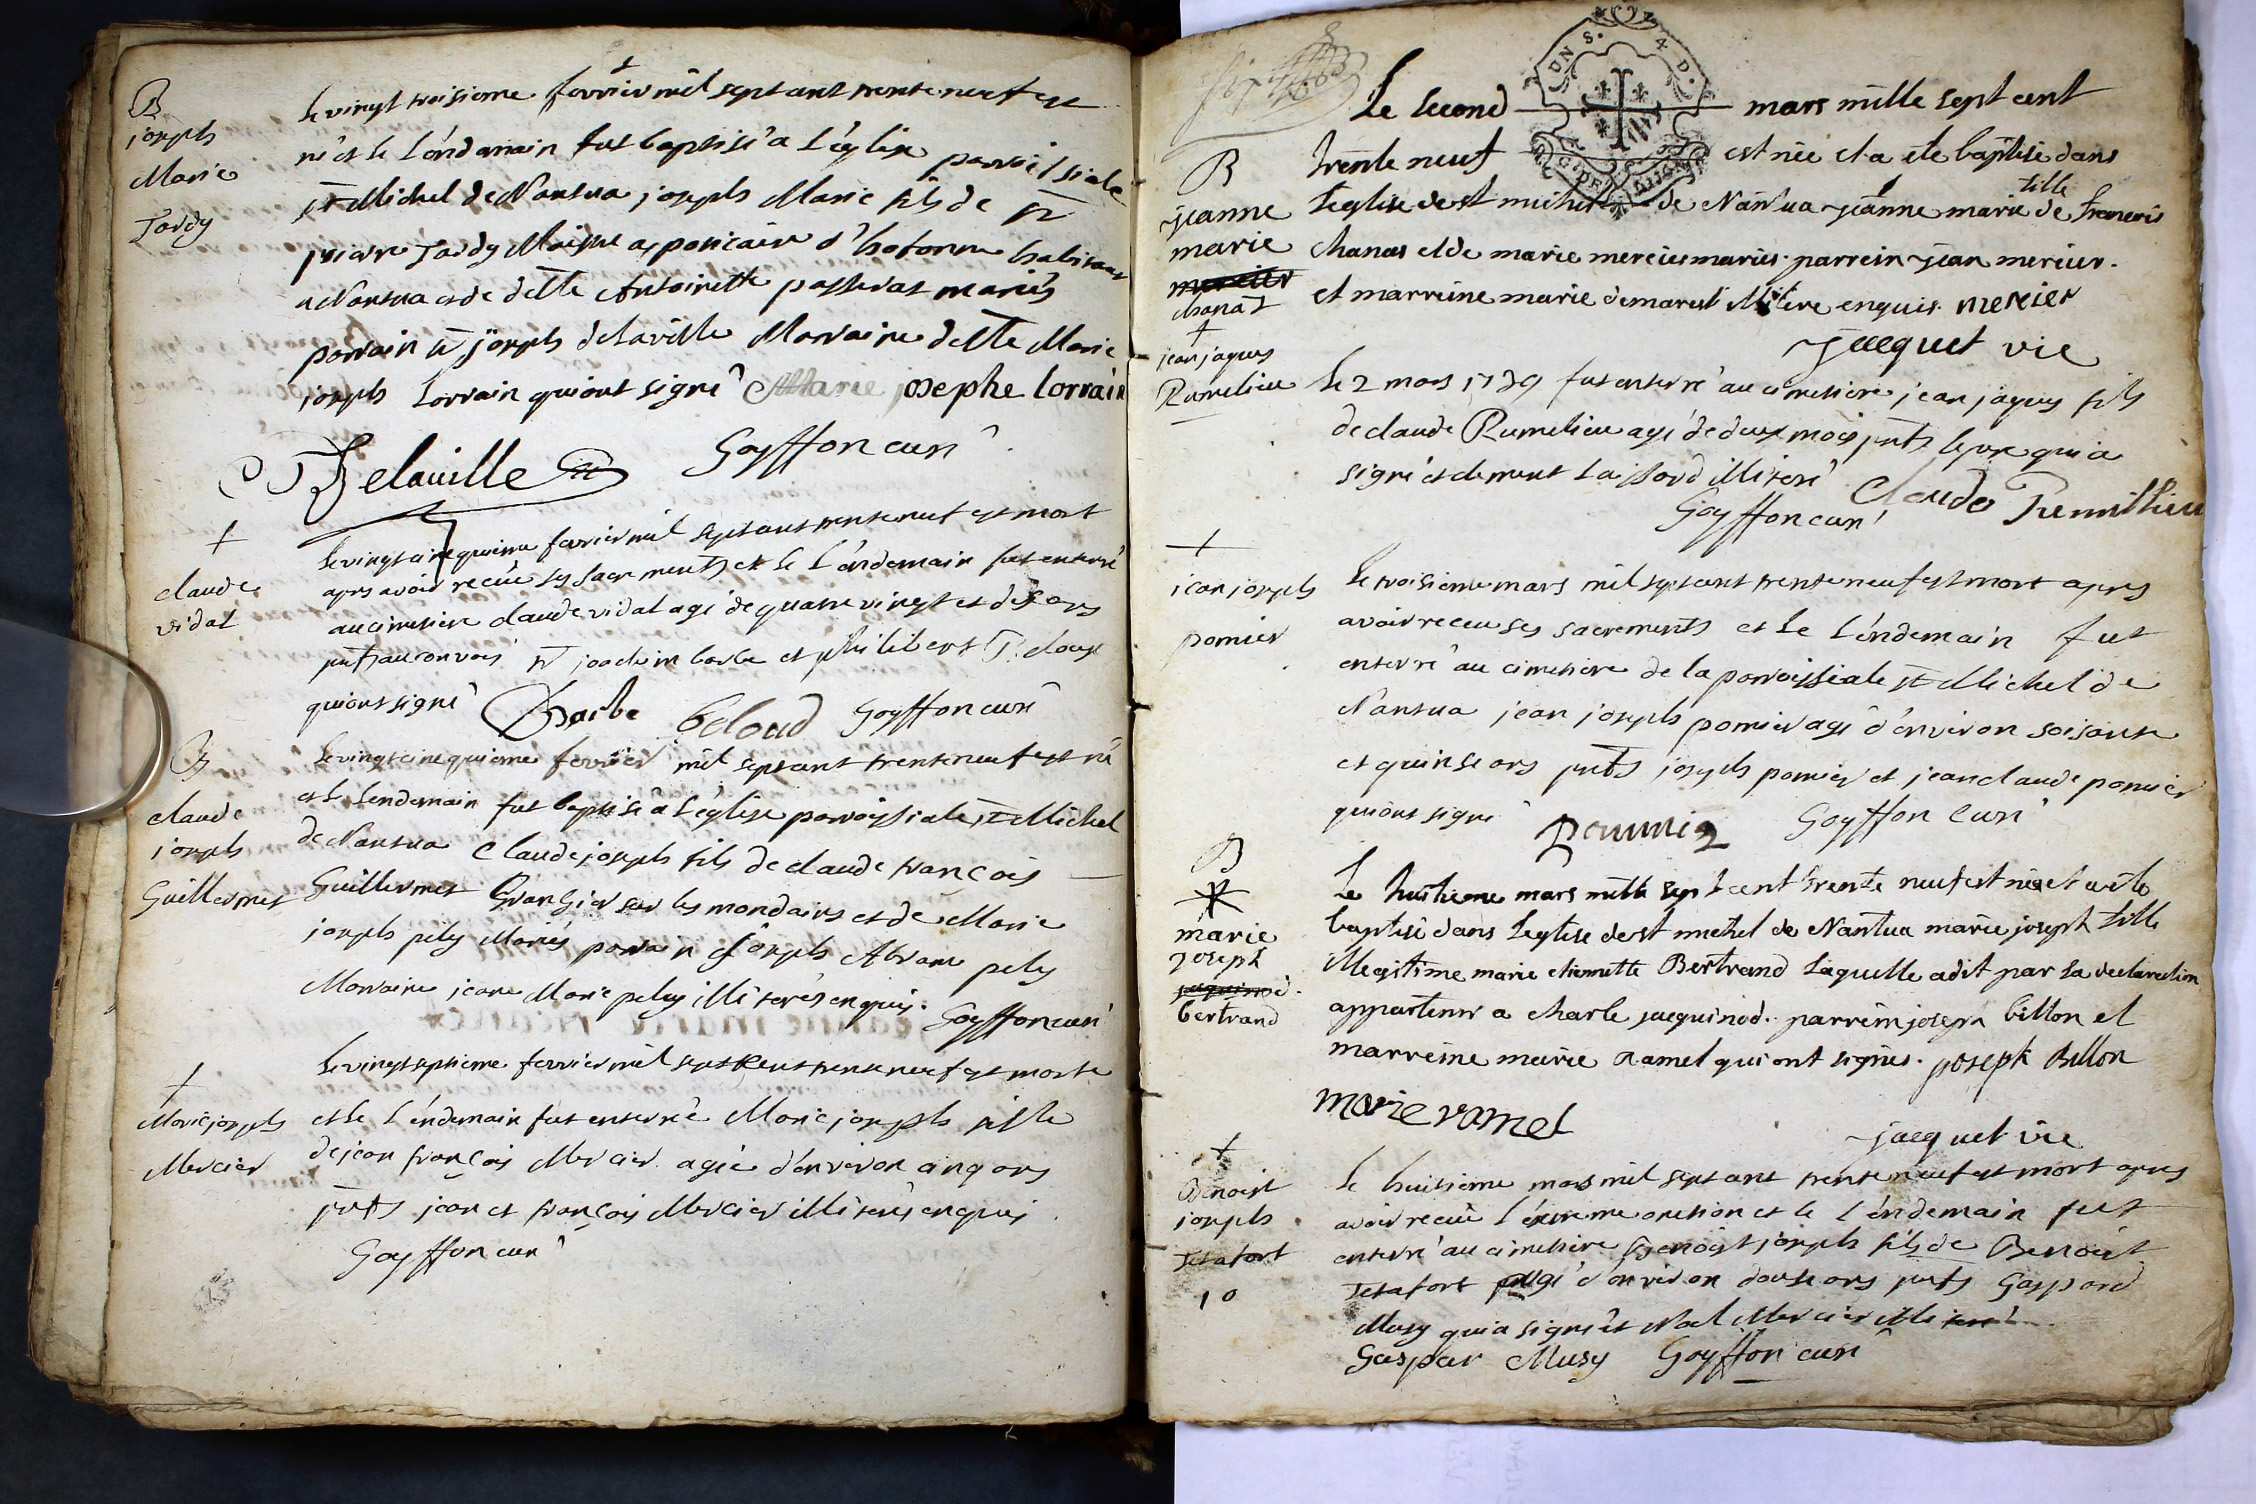 B
joseph
Marie
Tardy
le vingt troisieme fevrier mil sept cent trente neuf est
né et le l'éndemain fut baptisé a l'église parroissiale
st Michel de Nantua joseph Marie fils de sr
pierre Tardy Maitre apoticaire d'hotonne habitant
a Nantua et de delle Antoinette passerat mariés
parrain sr joseph delaville Marraine delle Marie
joseph Lorrain qui ont signé Marie josephe lorrain
Delaville Goyffon curé
+
claude
vidal
le vingt cinquieme fevrier mil sept cent trente neuf est mort
aprs avoir recüe ses sacrements et le l'éndemain fut enterré
au cimetiere claude vidal agé de quatre vingt et dix ans
pnts au convois sr joachim barbe et philibert
qui ont signé Barbe beloud Goyffon curé
B
claude
joseph
Guillermet
le vingt cinquieme fevrier mil sept cent trente neuf est né
et le lendemain fut baptisé a l'église parroissiale st Michel
de Nantua Claude joseph fils de claude françois
Guillermet Grangier sur les mondains et de Marie
joseph pely Mariés parrain joseph Abram pely
Marraine jeanne Marie pely illiterés enquis. Goyffon curé
+
Marie joseph
Mercier
le vingt septieme fevrier mil sept cent trente neuf est morte
et le l'éndemain fut enterrée Marie joseph fille
de jean françois Mercier agée d'environ cinq ans
pnts jean et françois Mercier illiterés enquis.
Goyffon curé
Le second mars mille sept cent
B
jeanne
marie
mercier
chanat
trente neuf est née et a ete baptisé dans
l'eglise de st michel de Nantua jeanne marie fille de francois
chanas et de marie mercier mariés. parrein jean mercier.
et marreine marie demarest illitere enquis. mercier
jacquet vic
+
jean jaques
Rumelieu
le 2 mars 1739 fut enterré au cimetiere jean jaques fils
de claude Rumelieu agé de deux mois pnts le pere qui a
signé et clement illiteré Claude
Goyffon curé
+
jean joseph
pomier
le troisieme mars mil sept cent trente neuf est mort aprs
avoir receu ses sacrements et le l'éndemain fut
enterré au cimetiere de la parroissiale st Michel de
Nantua jean joseph pomier agé d'environ soisante
et quinse ans pnts joseph pomier et jean claude pomier
qui ont signé Goyffon Curé
B
marie
joseph
jaquinod
bertrand
Le huitieme mars mille sept cent trente neuf est née et a ete
baptisé dans l'eglise de st michel de Nantua marie joseph fille
illegitime marie etiennette Bertrand laquelle a dit par sa declaration
appartenir a charle jacquinod. parrein joseph billon et
marreine marie ramel qui ont signés. joseph Billon
marie ramel
jacquet vic
+
Benoist
joseph
Tetafort
10
le huitieme mars mil sept cent trente neuf est mort aprs
avoir recüe l'éxtreme onction et le l'éndemain fut
enterré au cimetiere Benoist joseph fils de Benoist
Tetafort agé d'environ douse ans pnts Gaspard
Musy qui a signé et Noel Mercier illiteré
Gaspar Musy Goyffon curé